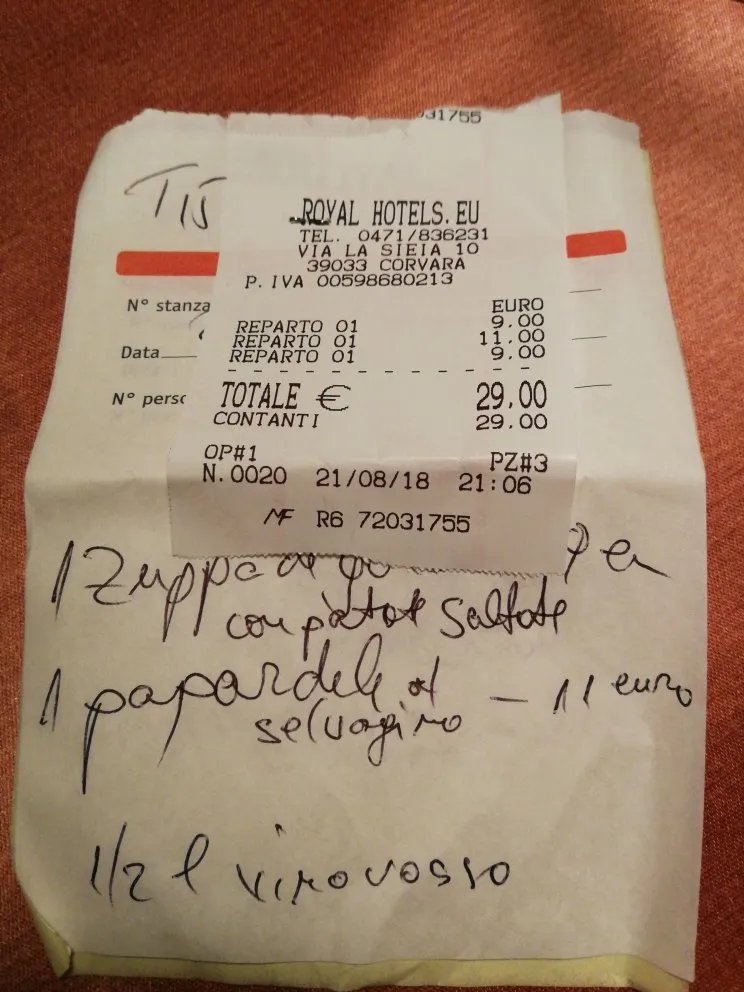 31755
T15
ROYAL HOTELS.EU
TEL. 0471/836231
VIA LA SIEIA 10
39033 CORVARA
P.IVA 00598680213
EURO
REPARTO 01 9.00
REPARTO 01 11.00
REPARTO 01 9.00
TOTALE € 29.00
CONTANTI 29.00
OP#1 PZ#3
N.0020 21/08/18 21:06
MF R6 72031755
N° stanza
Data
N° perso
1 Zuppa di
con patate saltate
1 papardele di
selvagino – 11 euro
1/2 l vino rosso